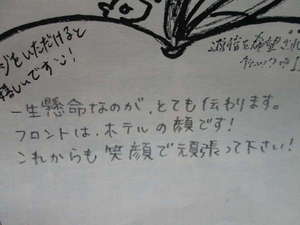 ージをいただけると
嬉しいです
返信を希望され
一生懸命なのが、とても伝わります。
フロントは、ホテルの顔です!
これからも笑顔で頑張って下さい!